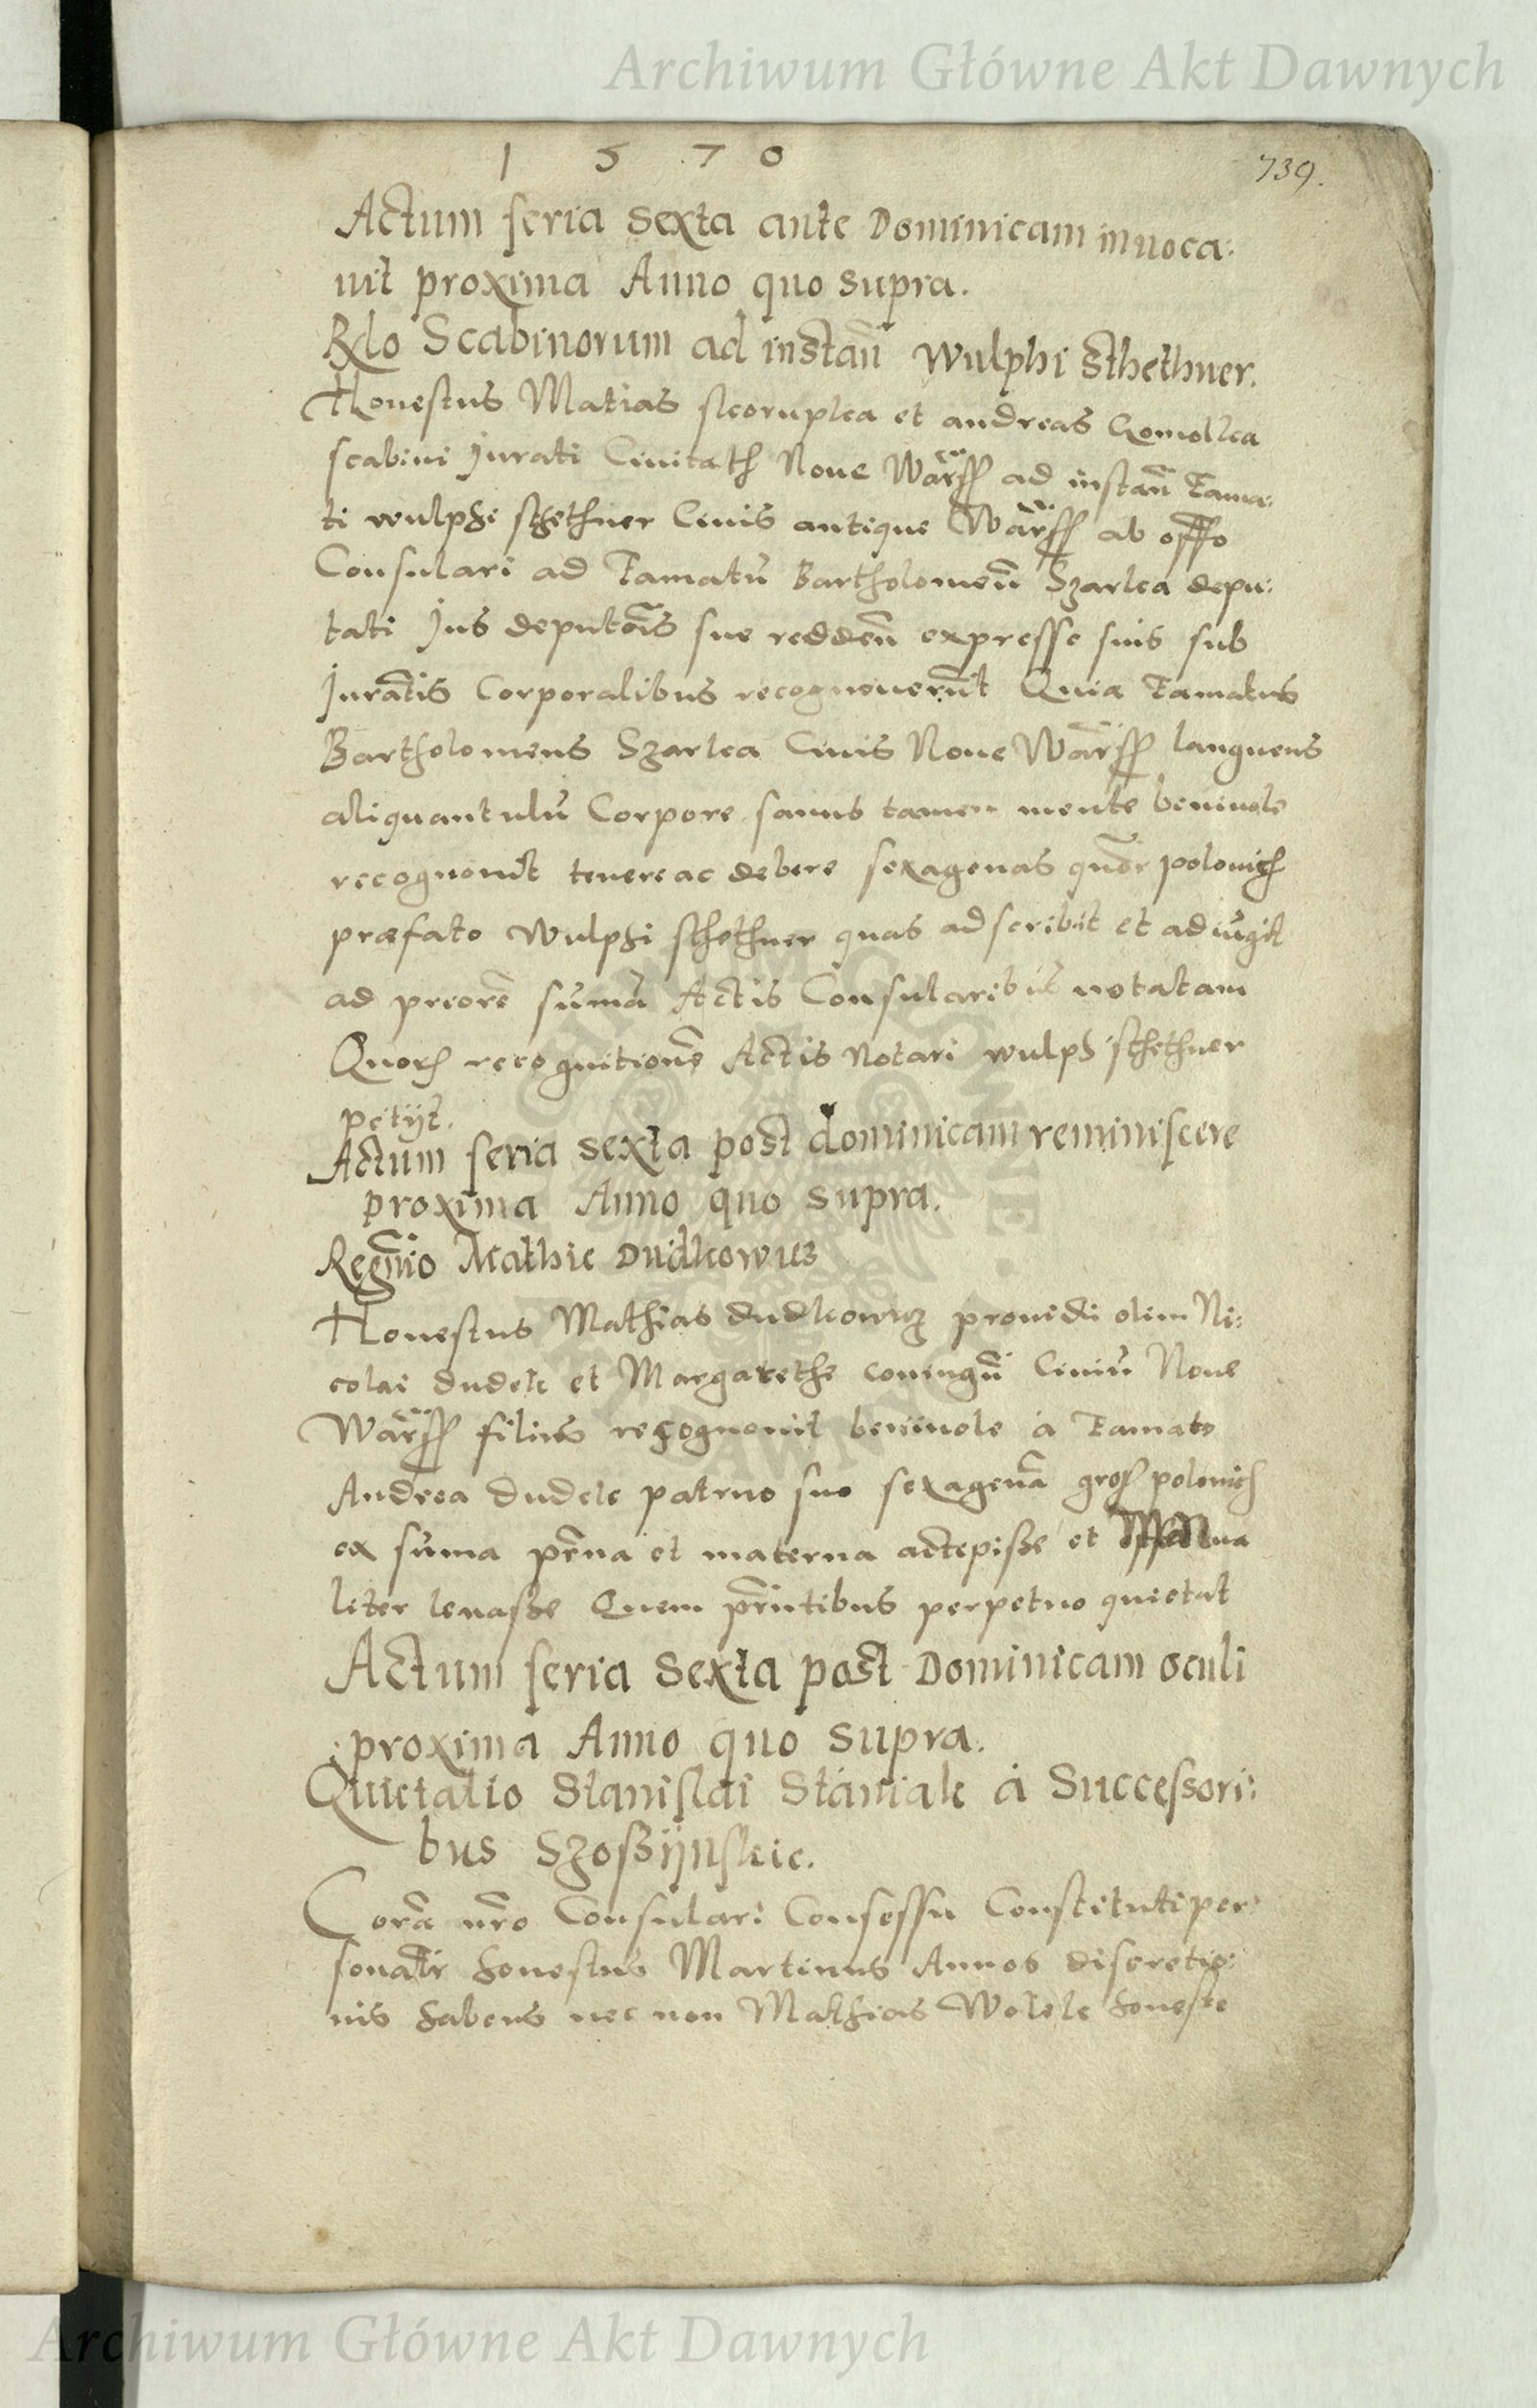 Archiwum Główne Akt Dawnych
1570
739.
Actum feria sexta ante Dominicam inuoca:
uit proxima Anno quo supra.
Rlo Scabinorum ad instan̄ Wulphi Sthethner.
Honestus Matias skorupka et andreas Gomolka
scabini Jurati Ciuitatis Noue Warss ad instan̄ Fama:
ti wulphi sthethner Ciuis antique Warss ab offo
Consulari ad Famatū Bartholomeū Szarka depu:
tati Jus deputōis sue redden̄ expresse suis sub
Jurātis Corporalibus recognouerūt Quia Famatus
Bartholomeus Szarka Ciuis Noue Warss languens
aliquantulū Corpore sanus tamen mente beniuole
recognouit tenere ac debere sexagenas quōr polonich
præfato Wulphi sthethner quas adscribit et adiūgit
ad preorē sūmā Actis Consularibus notatam
Quorum recognitionē Actis Notari wulph sthethner
petijt.
Actum feria sexta post dominicam reminiscere
proxima Anno quo supra.
Regnio Mathie Dudkowicz
Honestus Mathias dudkowicz prouidi olim Ni:
colai dudek et Margarethe coniugū Ciuiū Noue
Warss filius recognouit beniuole a Famato
Andrea dudek patruo suo sexagenā gross polonich
ex sūma pr̄na et materna accepisse et
liter leuasse Quem pr̄ntibus perpetuo quietat
Actum feria sexta post Dominicam oculi
proxima Anno quo supra.
Quietatio Stanislai Staniak a Successori:
bus Szoszijnskie.
Corā nr̄o Consulari Consessu Constituti per:
sonalr honestus Martinus Annos discretio:
nis habens nec non Mathias Wolek honeste
Archiwum Główne Akt Dawnych